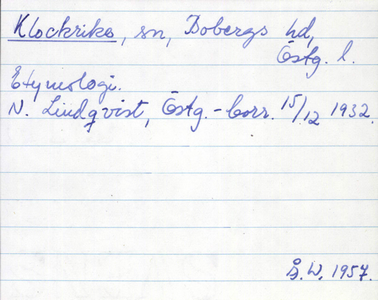 Klockrike, sn, Bobergs hd,
Östg. l.
Etymologi.
N. Lindqvist, Östg.-Corr. 15/12 1932.
B.W. 1957.